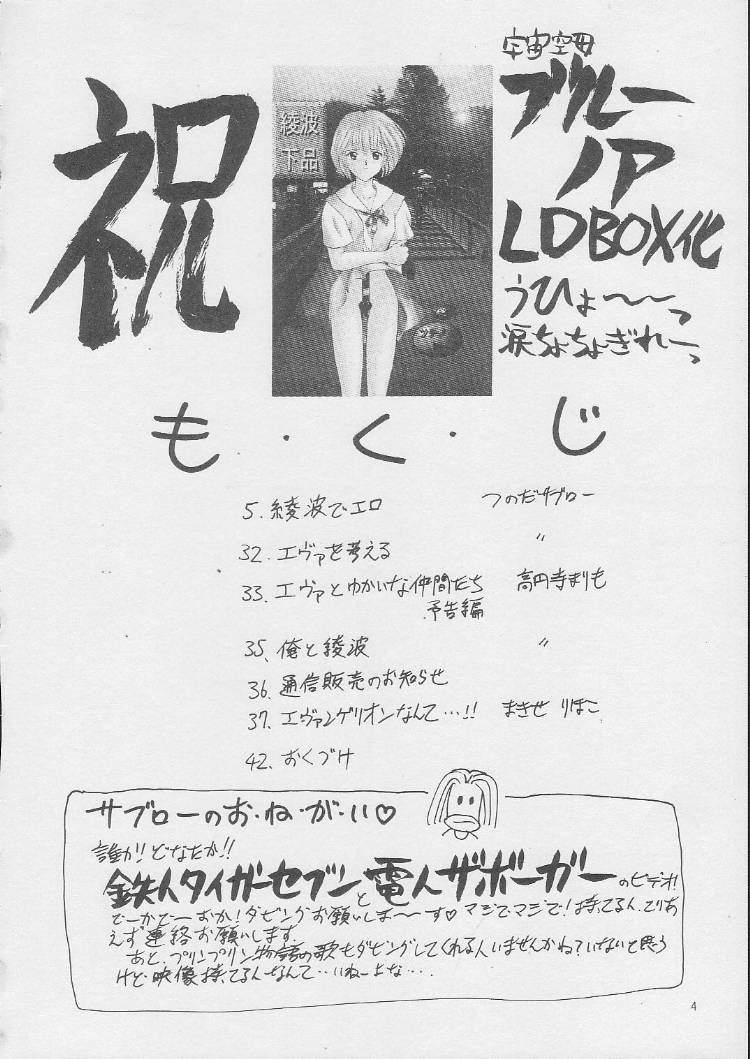 祝
綾波
下品
宇宙空母
ブルー
ノア
LDBOX化
うひょ〜〜っ
涙ちょちょぎれーっ
も・く・じ
5. 綾波でエロ つのだサブロー
32. エヴァを考える 〃
33. エヴァとゆかいな仲間たち 高円寺まりも
予告編
35. 俺と綾波 〃
36. 通信販売のお知らせ
37. エヴァンゲリオンなんて…!! まきせ りほこ
42. おくづけ
サブローのお・ね・が・い♡
誰か!どなたか!!
鉄人タイガーセブンと電人ザボーガーのビデオ!
どーかどーおか!ダビングお願いしま〜〜す♡マジでマジで!持ってるん、とりあ
えず連絡お願いします。
あと、プリンプリン物語の歌もダビングしてくれる人いませんかね?いないと思う
けど映像持ってる人ーなんて…いねーよな…
4